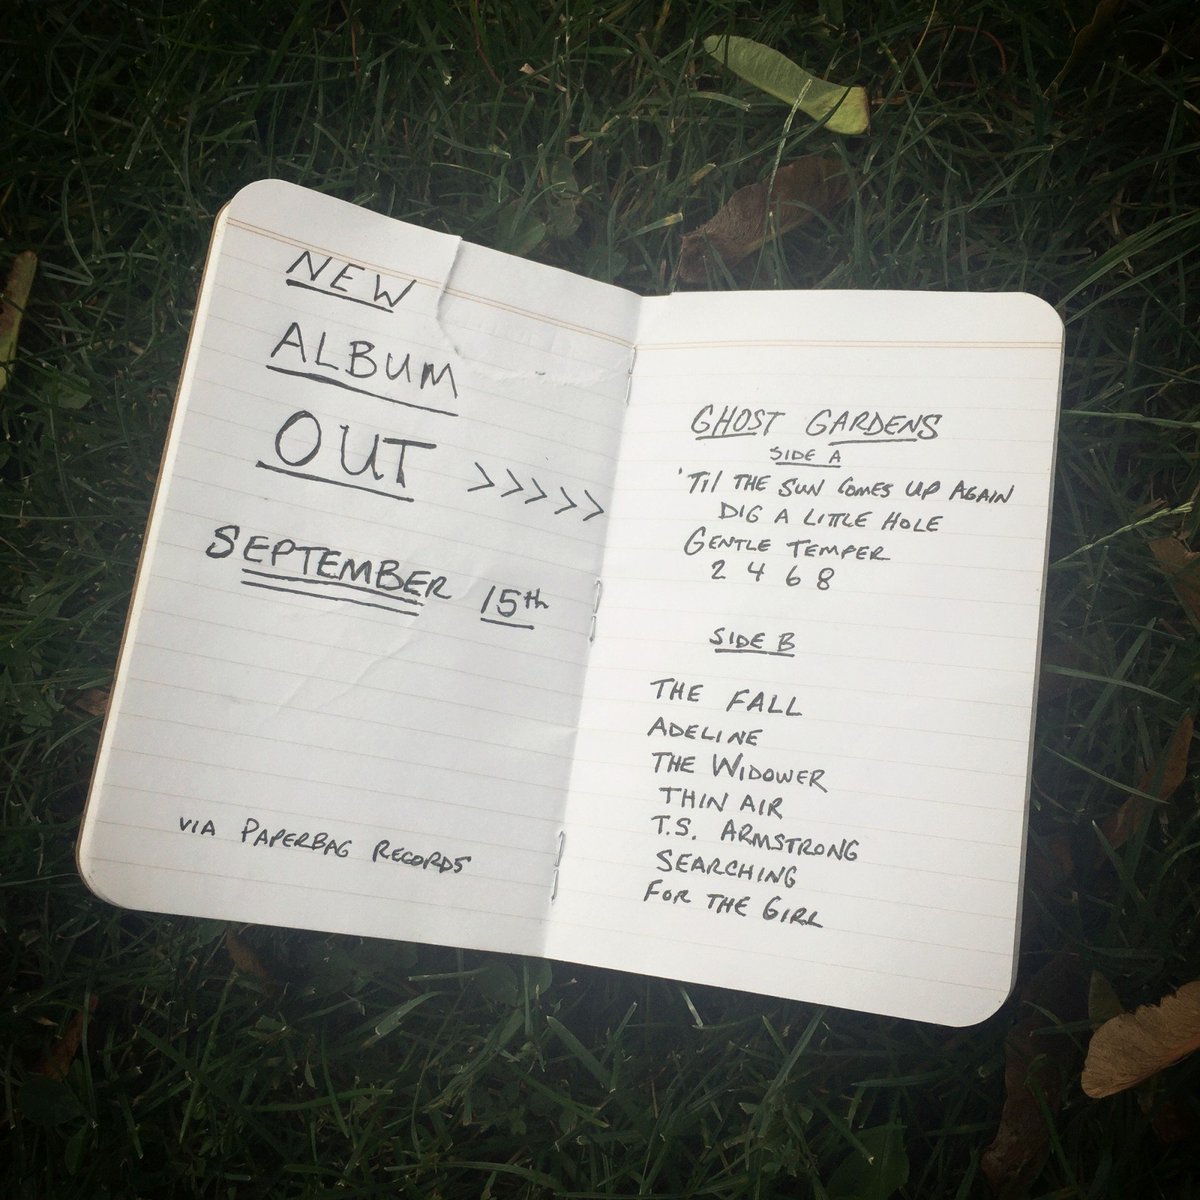 NEW
ALBUM
OUT >>>>>
SEPTEMBER 15th
VIA PAPERBAG RECORDS
GHOST GARDENS
SIDE A
'Til THE SUN COMES UP AGAIN
DIG A LITTLE HOLE
GENTLE TEMPER
2 4 6 8
SIDE B
THE FALL
ADELINE
THE WIDOWER
THIN AIR
T.S. ARMSTRONG
SEARCHING
FOR THE GIRL